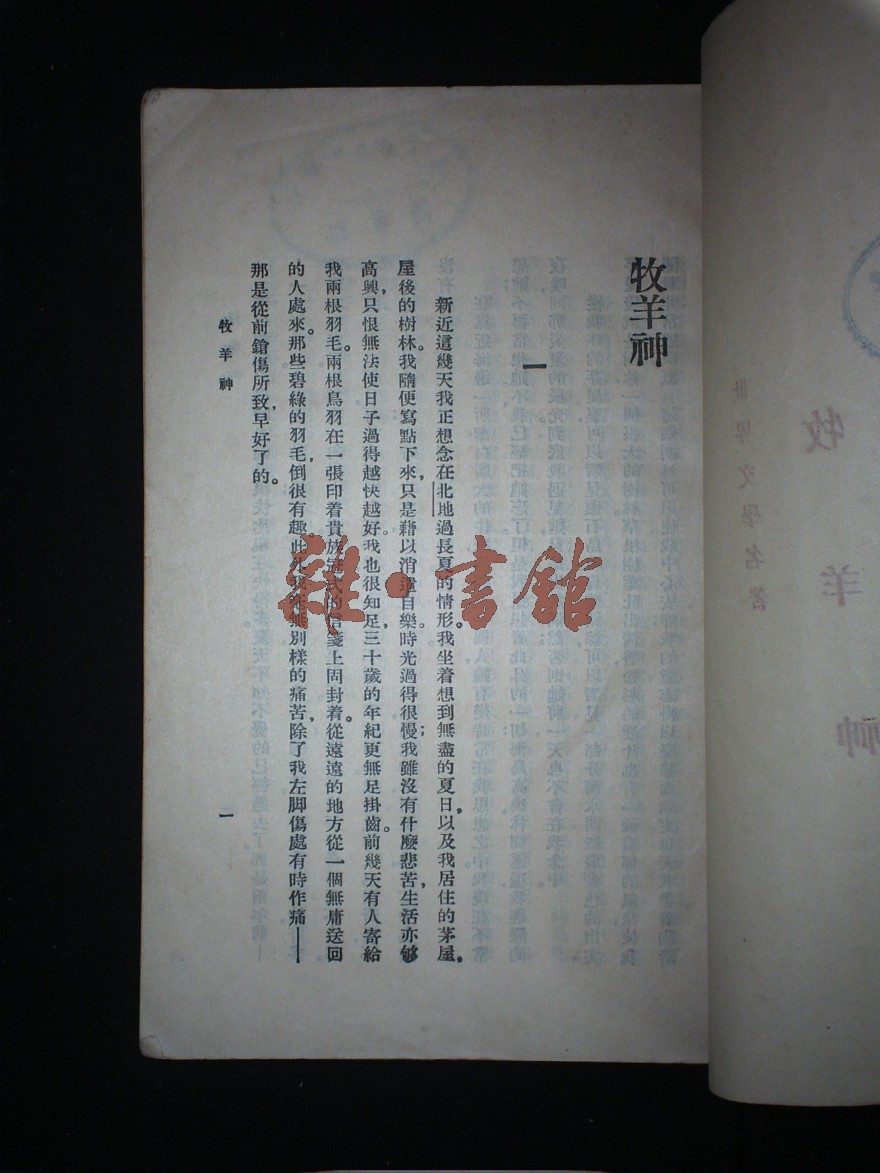 牧羊神
一
新近這幾天我正想念在北地過長夏的情形。我坐着想到無盡的夏日，以及我居住的茅屋。
屋後的樹林。我隨便寫點下來，只是藉以消遣自樂。時光過得很慢；我雖沒有什麼悲苦，生活亦够
高興，只恨無法使日子過得越快越好。我也很知足，三十歲的年紀更無足掛齒。前幾天有人寄給
我兩根羽毛。兩根鳥羽在一張印着貴族冠式的信箋上固封着。從遠遠的地方從一個無庸送回
的人處來。那些碧綠的羽毛，倒很有趣。此外我毫無別樣的痛苦，除了我左脚傷處有時作痛——
那是從前鎗傷所致，早好了的。
牧羊神
一
雜·書館
世界文學名著
牧羊神